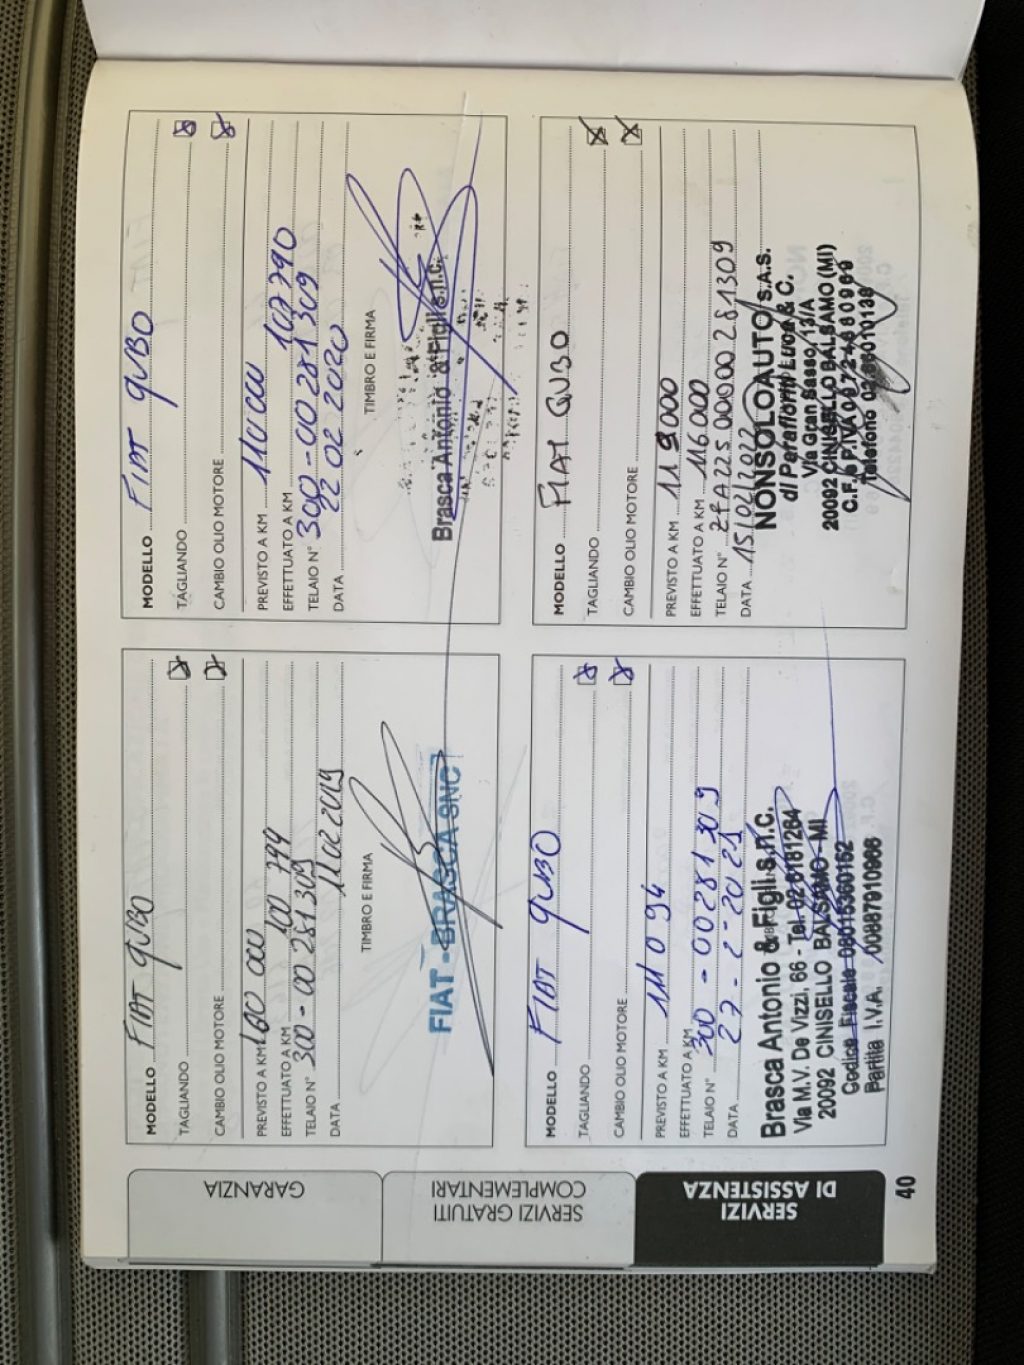 MODELLO FIAT QUBO
TAGLIANDO
CAMBIO OLIO MOTORE
PREVISTO A KM 100 000
EFFETTUATO A KM 100 744
TELAIO N° 300-00 281 309
DATA 11 02 2019
TIMBRO E FIRMA
FIAT - BRASCA SNC
MODELLO FIAT QUBO
TAGLIANDO
CAMBIO OLIO MOTORE
PREVISTO A KM 110 000
EFFETTUATO A KM 107 790
TELAIO N° 300-00 281 309
DATA 22 02 2020
TIMBRO E FIRMA
Brasca Antonio & Figli s.n.c.
MODELLO FIAT QUBO
TAGLIANDO
CAMBIO OLIO MOTORE
PREVISTO A KM 110 94
EFFETTUATO A KM
TELAIO N° 300-00281309
DATA 27-2-2021
Brasca Antonio & Figli s.n.c.
Via M.V. De Vizzi, 66 - Tel. 02 6181264
20092 CINISELLO BALSAMO - MI
Codice Fiscale 08015360152
Partita I.V.A. 00887910966
MODELLO FIAT QUBO
TAGLIANDO
CAMBIO OLIO MOTORE
PREVISTO A KM 119000
EFFETTUATO A KM 116000
TELAIO N° ZFA22500000281309
DATA 15/02/2022
NONSOLOAUTO S.A.S.
di Parafioriti Luca & C.
Via Gran Sasso, 13/A
20092 CINISELLO BALSAMO (MI)
C.F. e P.IVA 09724680969
Telefono 02 66010138
GARANZIA
SERVIZI GRATUITI
COMPLEMENTARI
SERVIZI
DI ASSISTENZA
40